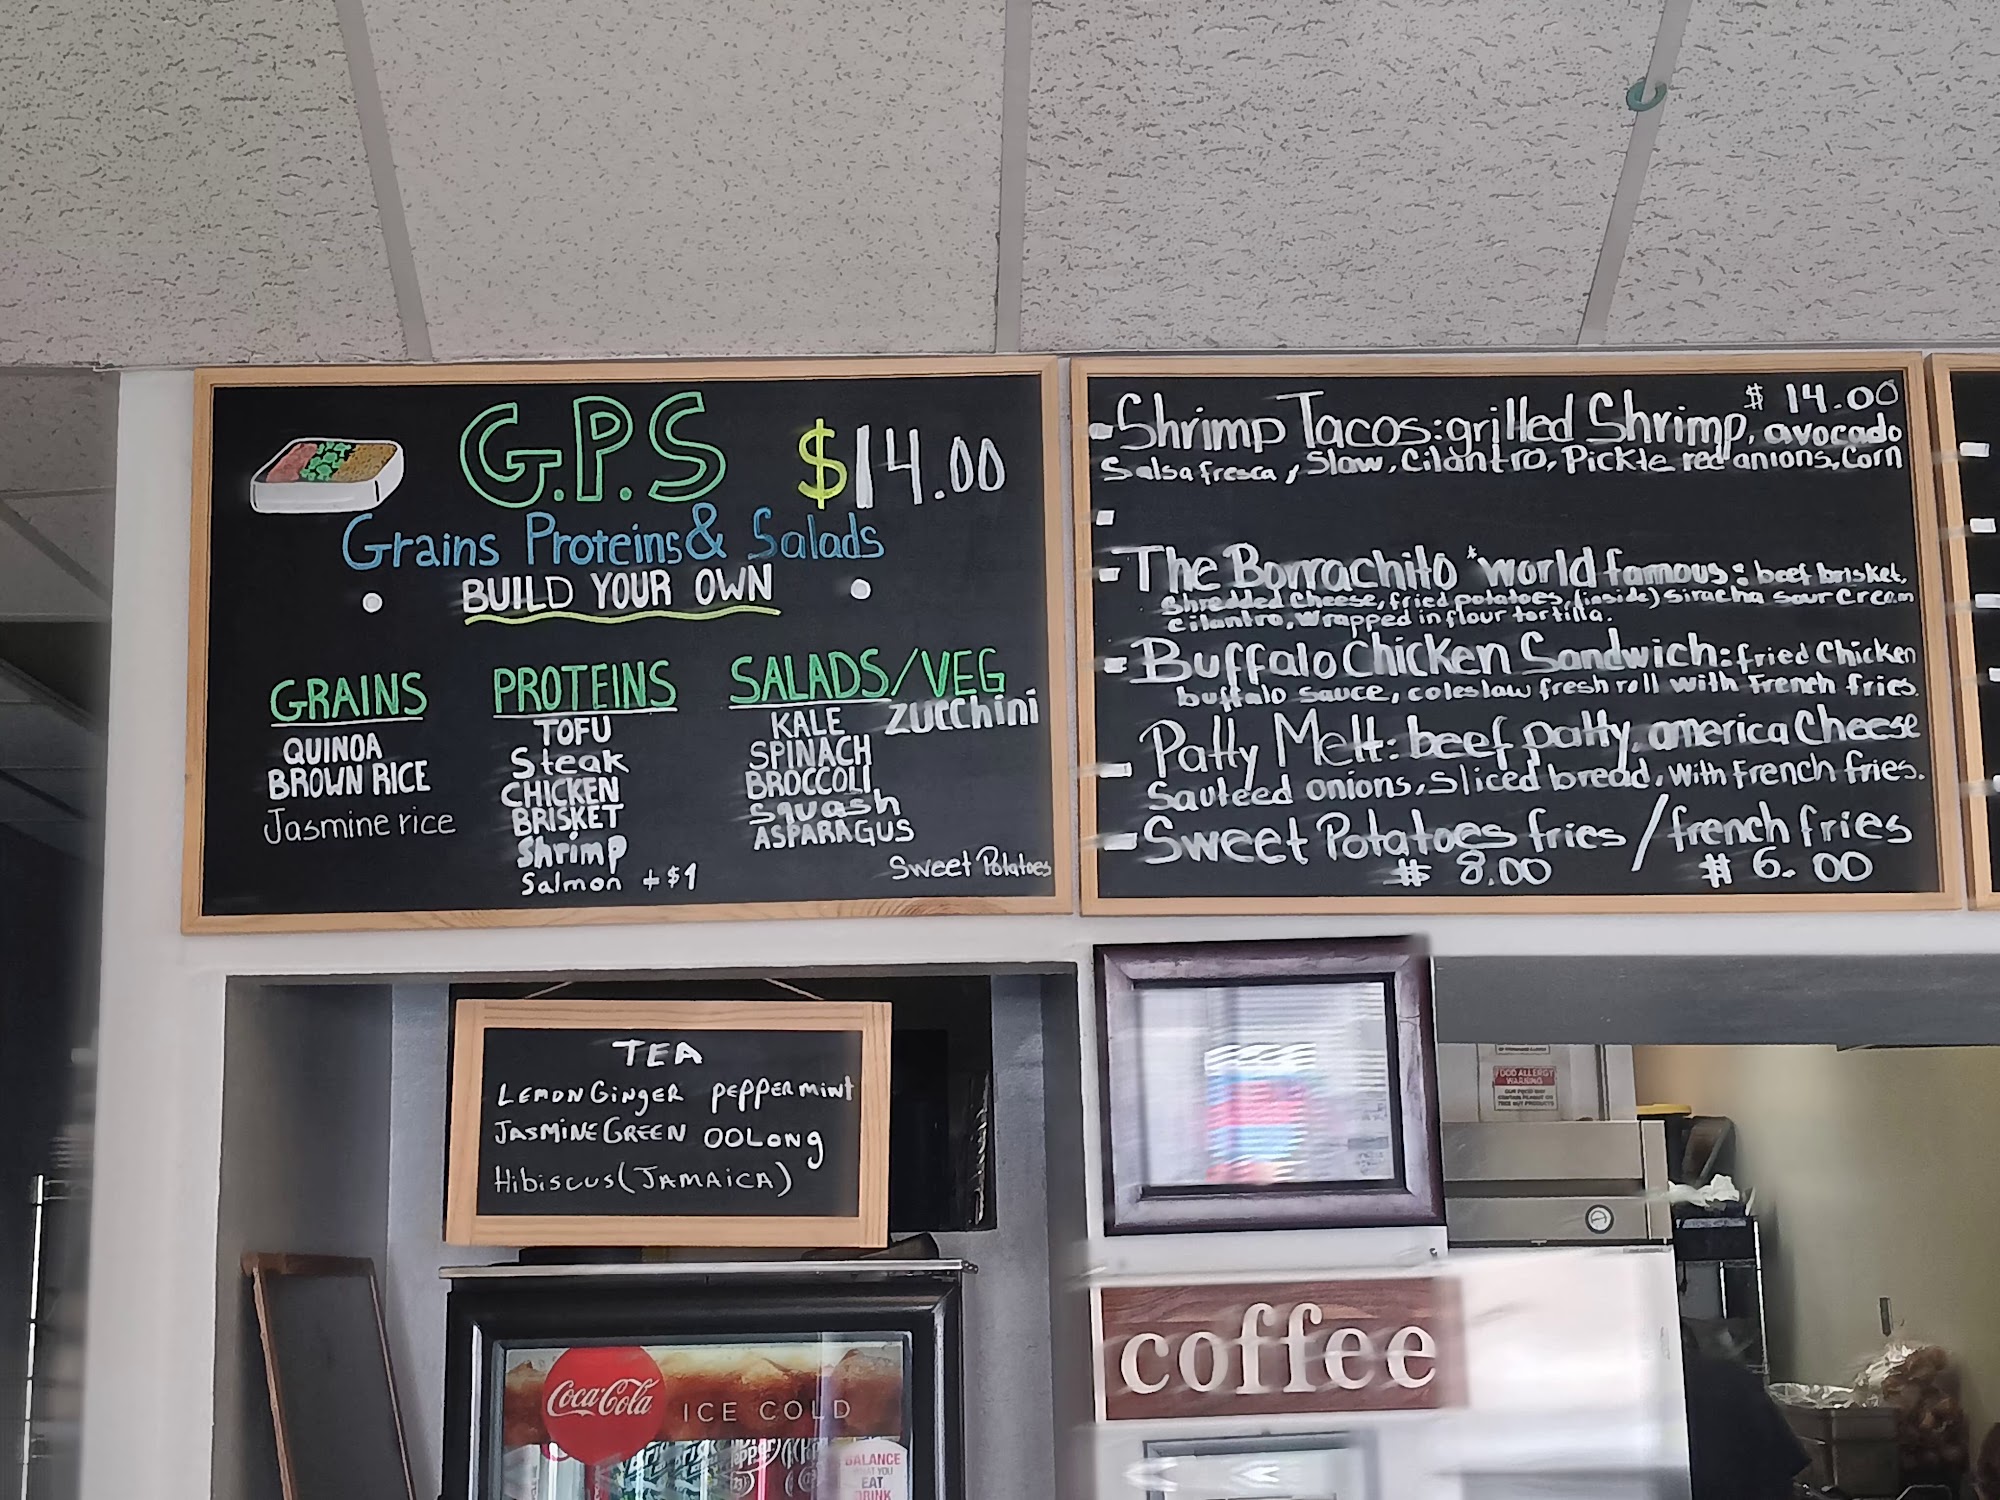 G.P.S $14.00
Grains Proteins & Salads
BUILD YOUR OWN
GRAINS
QUINOA
BROWN RICE
Jasmine rice
PROTEINS
TOFU
Steak
CHICKEN
BRISKET
Shrimp
Salmon + $1
SALADS/VEG
KALE Zucchini
SPINACH
BROCCOLI
Squash
ASPARAGUS
Sweet Potatoes
$ 14.00
Shrimp Tacos: grilled Shrimp, avocado
Salsa fresca, Slaw, Cilantro, Pickle red anions, Corn
The Borrachito *world famous: beef brisket,
Shredded Cheese, fried potatoes (inside) siracha sour cream
cilantro, wrapped in flour tortilla.
Buffalo Chicken Sandwich: fried Chicken
buffalo sauce, coleslaw fresh roll with french fries.
Patty Melt: beef patty, america Cheese
Sauteed onions, sliced bread, with french fries.
Sweet Potatoes fries / french fries
$ 8.00 $ 6.00
TEA
LEMON GINGER PEPPERMINT
JASMINE GREEN OOLONG
Hibiscus (JAMAICA)
FOOD ALLERGY
WARNING
coffee
Coca-Cola ICE COLD
BALANCE
WHAT YOU
EAT
DRINK